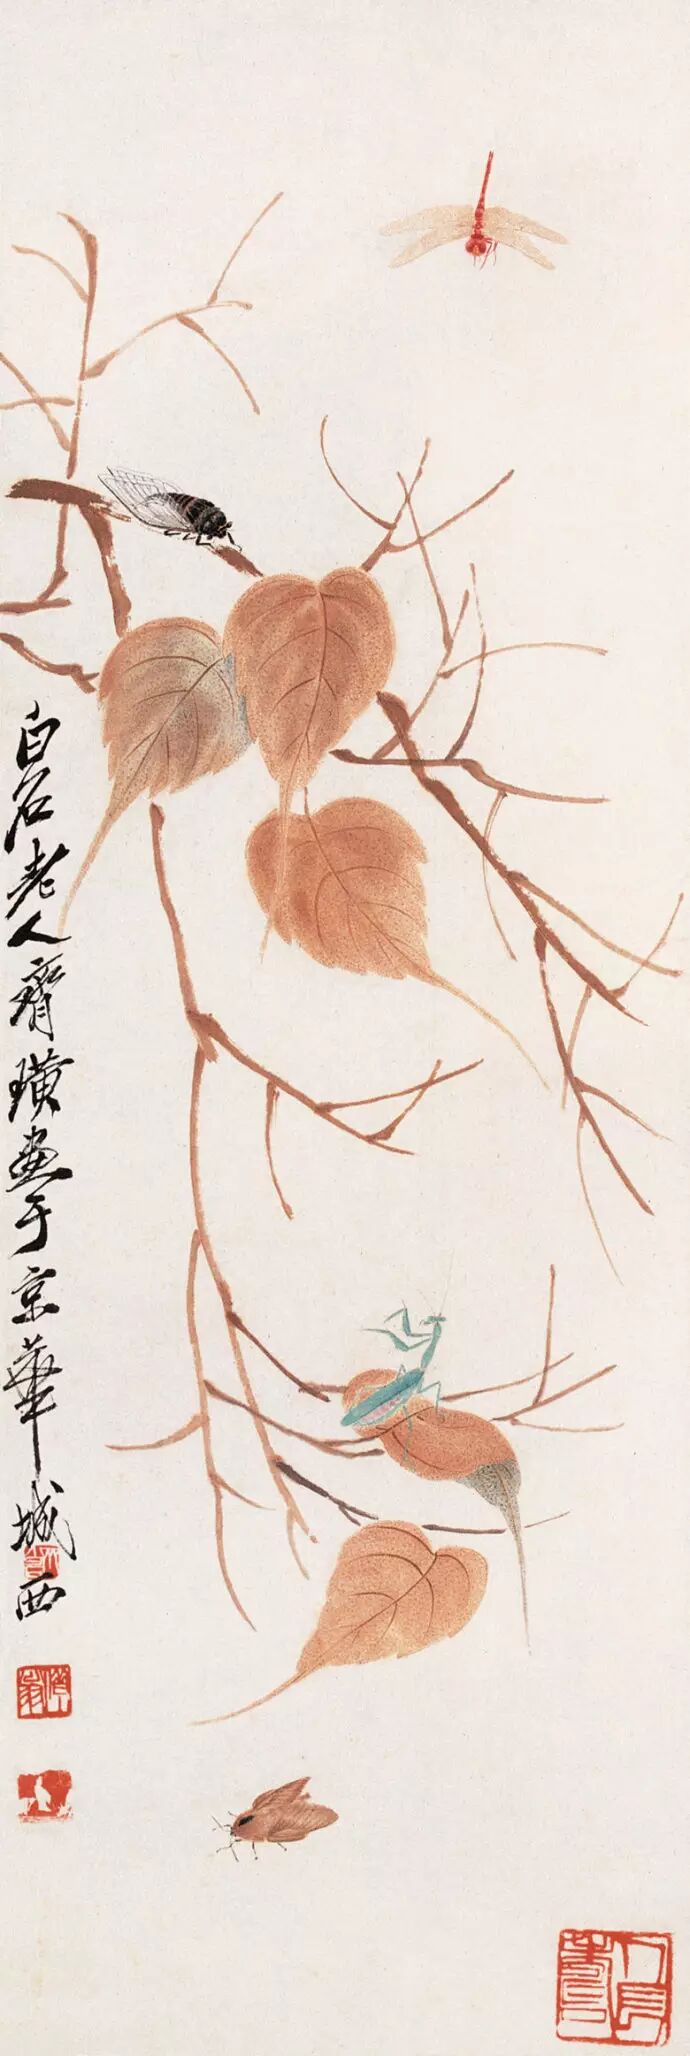 白石老人齊璜畫于京華城西